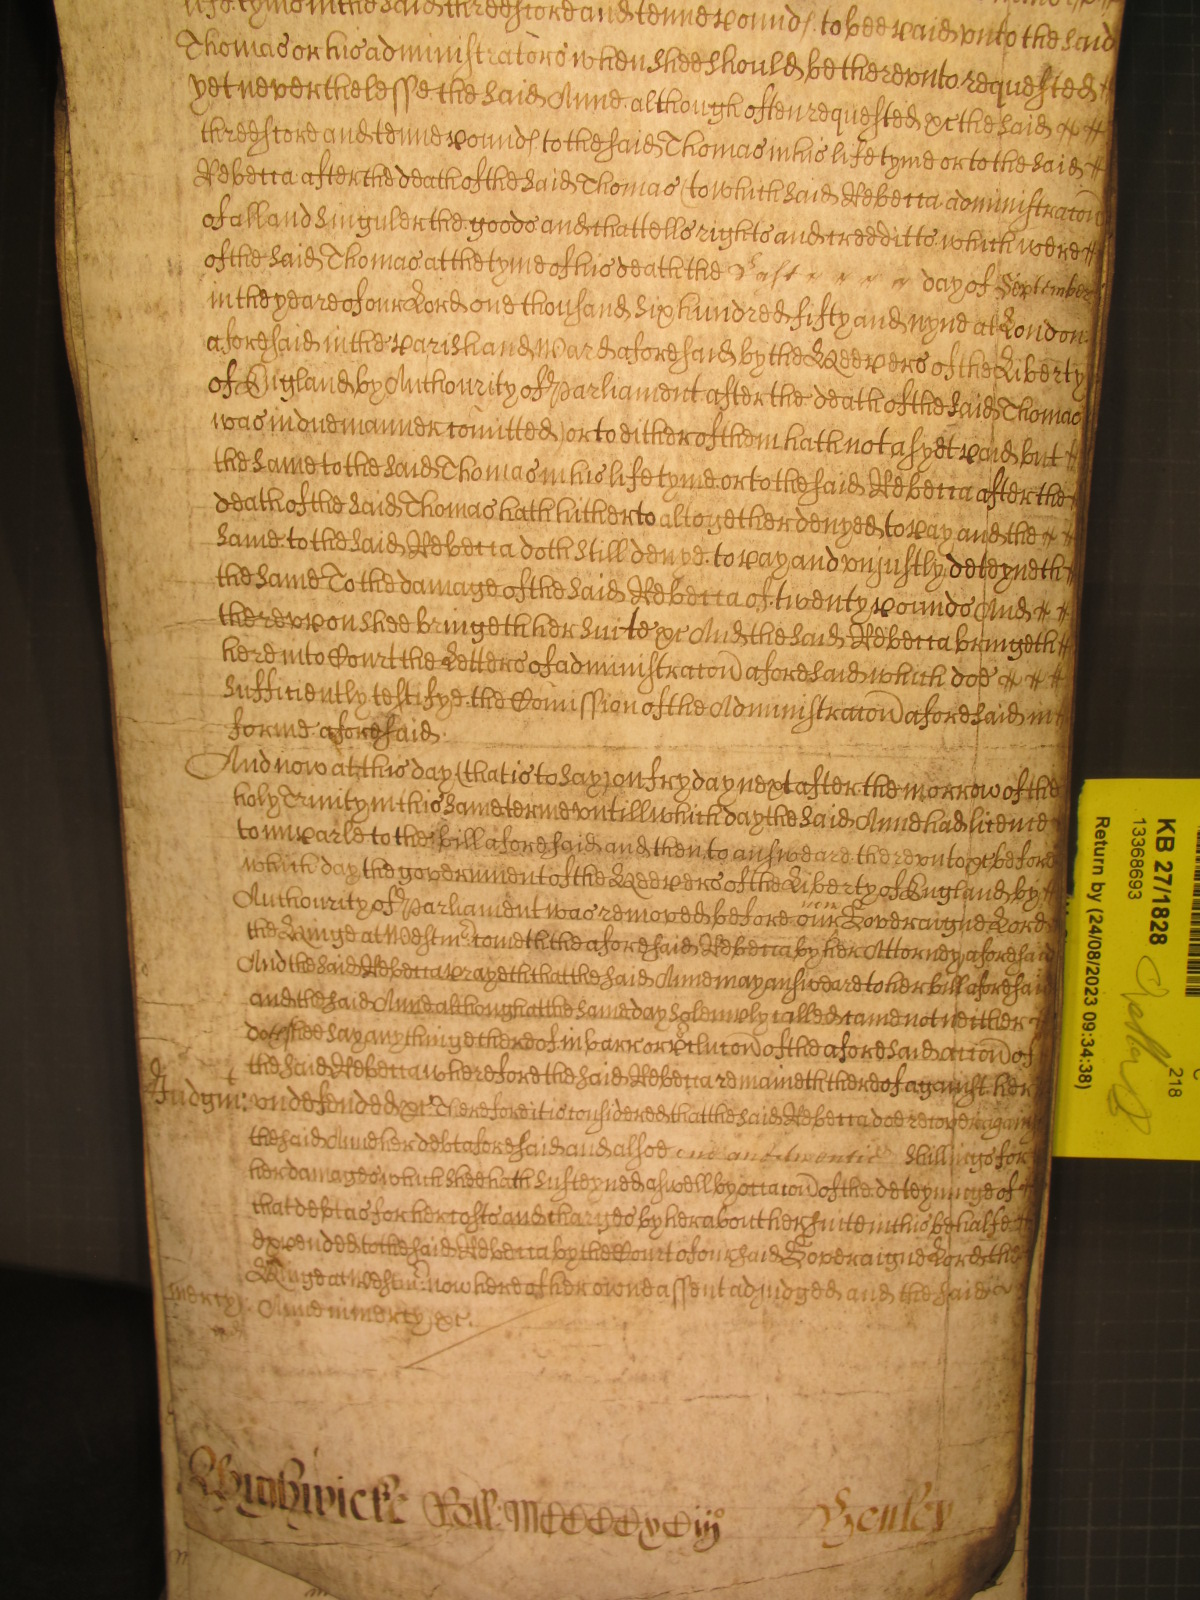 life tyme in the said threescore and tenne pounds to bee paid vnto the said
Thomas or his administrators when shee should be therevnto requested
yet neverthelesse the said Anne although often requested &c the said
threescore and tenne pounds to the said Thomas in his life tyme or to the said
Rebecca after the death of the said Thomas (to which said Rebecca administracon
of all and singuler the goods and chattells rights and credditts which were
of the said Thomas at the tyme of his death the last day of September
in the yeare of our Lord one thousand six hundred fifty and nyne at London
aforesaid in the parish and Ward aforesaid by the Keepers of the Liberty
of England by Authourity of Parliament after the death of the said Thomas
was in due manner comitted) or to either of them hath not as yet paid but
the same to the said Thomas in his life tyme or to the said Rebecca after the
death of the said Thomas hath hitherto altogether denyed to pay and the
same to the said Rebecca doth still denye to pay and vnjustly deteyneth
the same To the damage of the said Rebecca of twenty pounds And
therevpon shee bringeth her suite &c And the said Rebecca bringeth
here into Court the Letters of administracon aforesaid which doe
sufficiently testifye the Comission of the Administracon aforesaid in
forme aforesaid
And now at this day (that is to say) on fryday next after the morrow of the
holy Trinity in this same terme vntill which day the said Anne had licence
to imparle to the bill aforesaid and then to answeare therevnto &c before
which day the government of the Keepers of the Liberty of England by
Authourity of Parliament was removed before our Soveraigne Lord
the Kinge at Westmr cometh the aforesaid Rebecca by her Attorney aforesaid
And the said Rebecca prayeth that the said Anne may answeare to her bill aforesaid
and the said Anne although at the same day solemnly called came not neither
doth shee say anythinge thereof in barr or preclucon of the aforesaid accon of
the said Rebecca wherefore the said Rebecca remaineth thereof against her
Judgmt: vndefended &c Therefore it is considered that the said Rebecca doe recover against
the said Anne her debt aforesaid and alsoe one and twentie shillings for
her damages which shee hath susteyned aswell by occacon of the deteyninge of
that debt as for her costs and charges by her about her suite in this behalfe
expended to the said Rebecca by the Court of our said Soveraigne Lord the
Kinge at Westmr now here of her owne assent adjudged and the said
mercy: Anne in mercy &c.
Wightwick Roll MCCCCxCiijo Henley
KB 27/1828
13368693
Return by (24/08/2023 09:34:38)
218